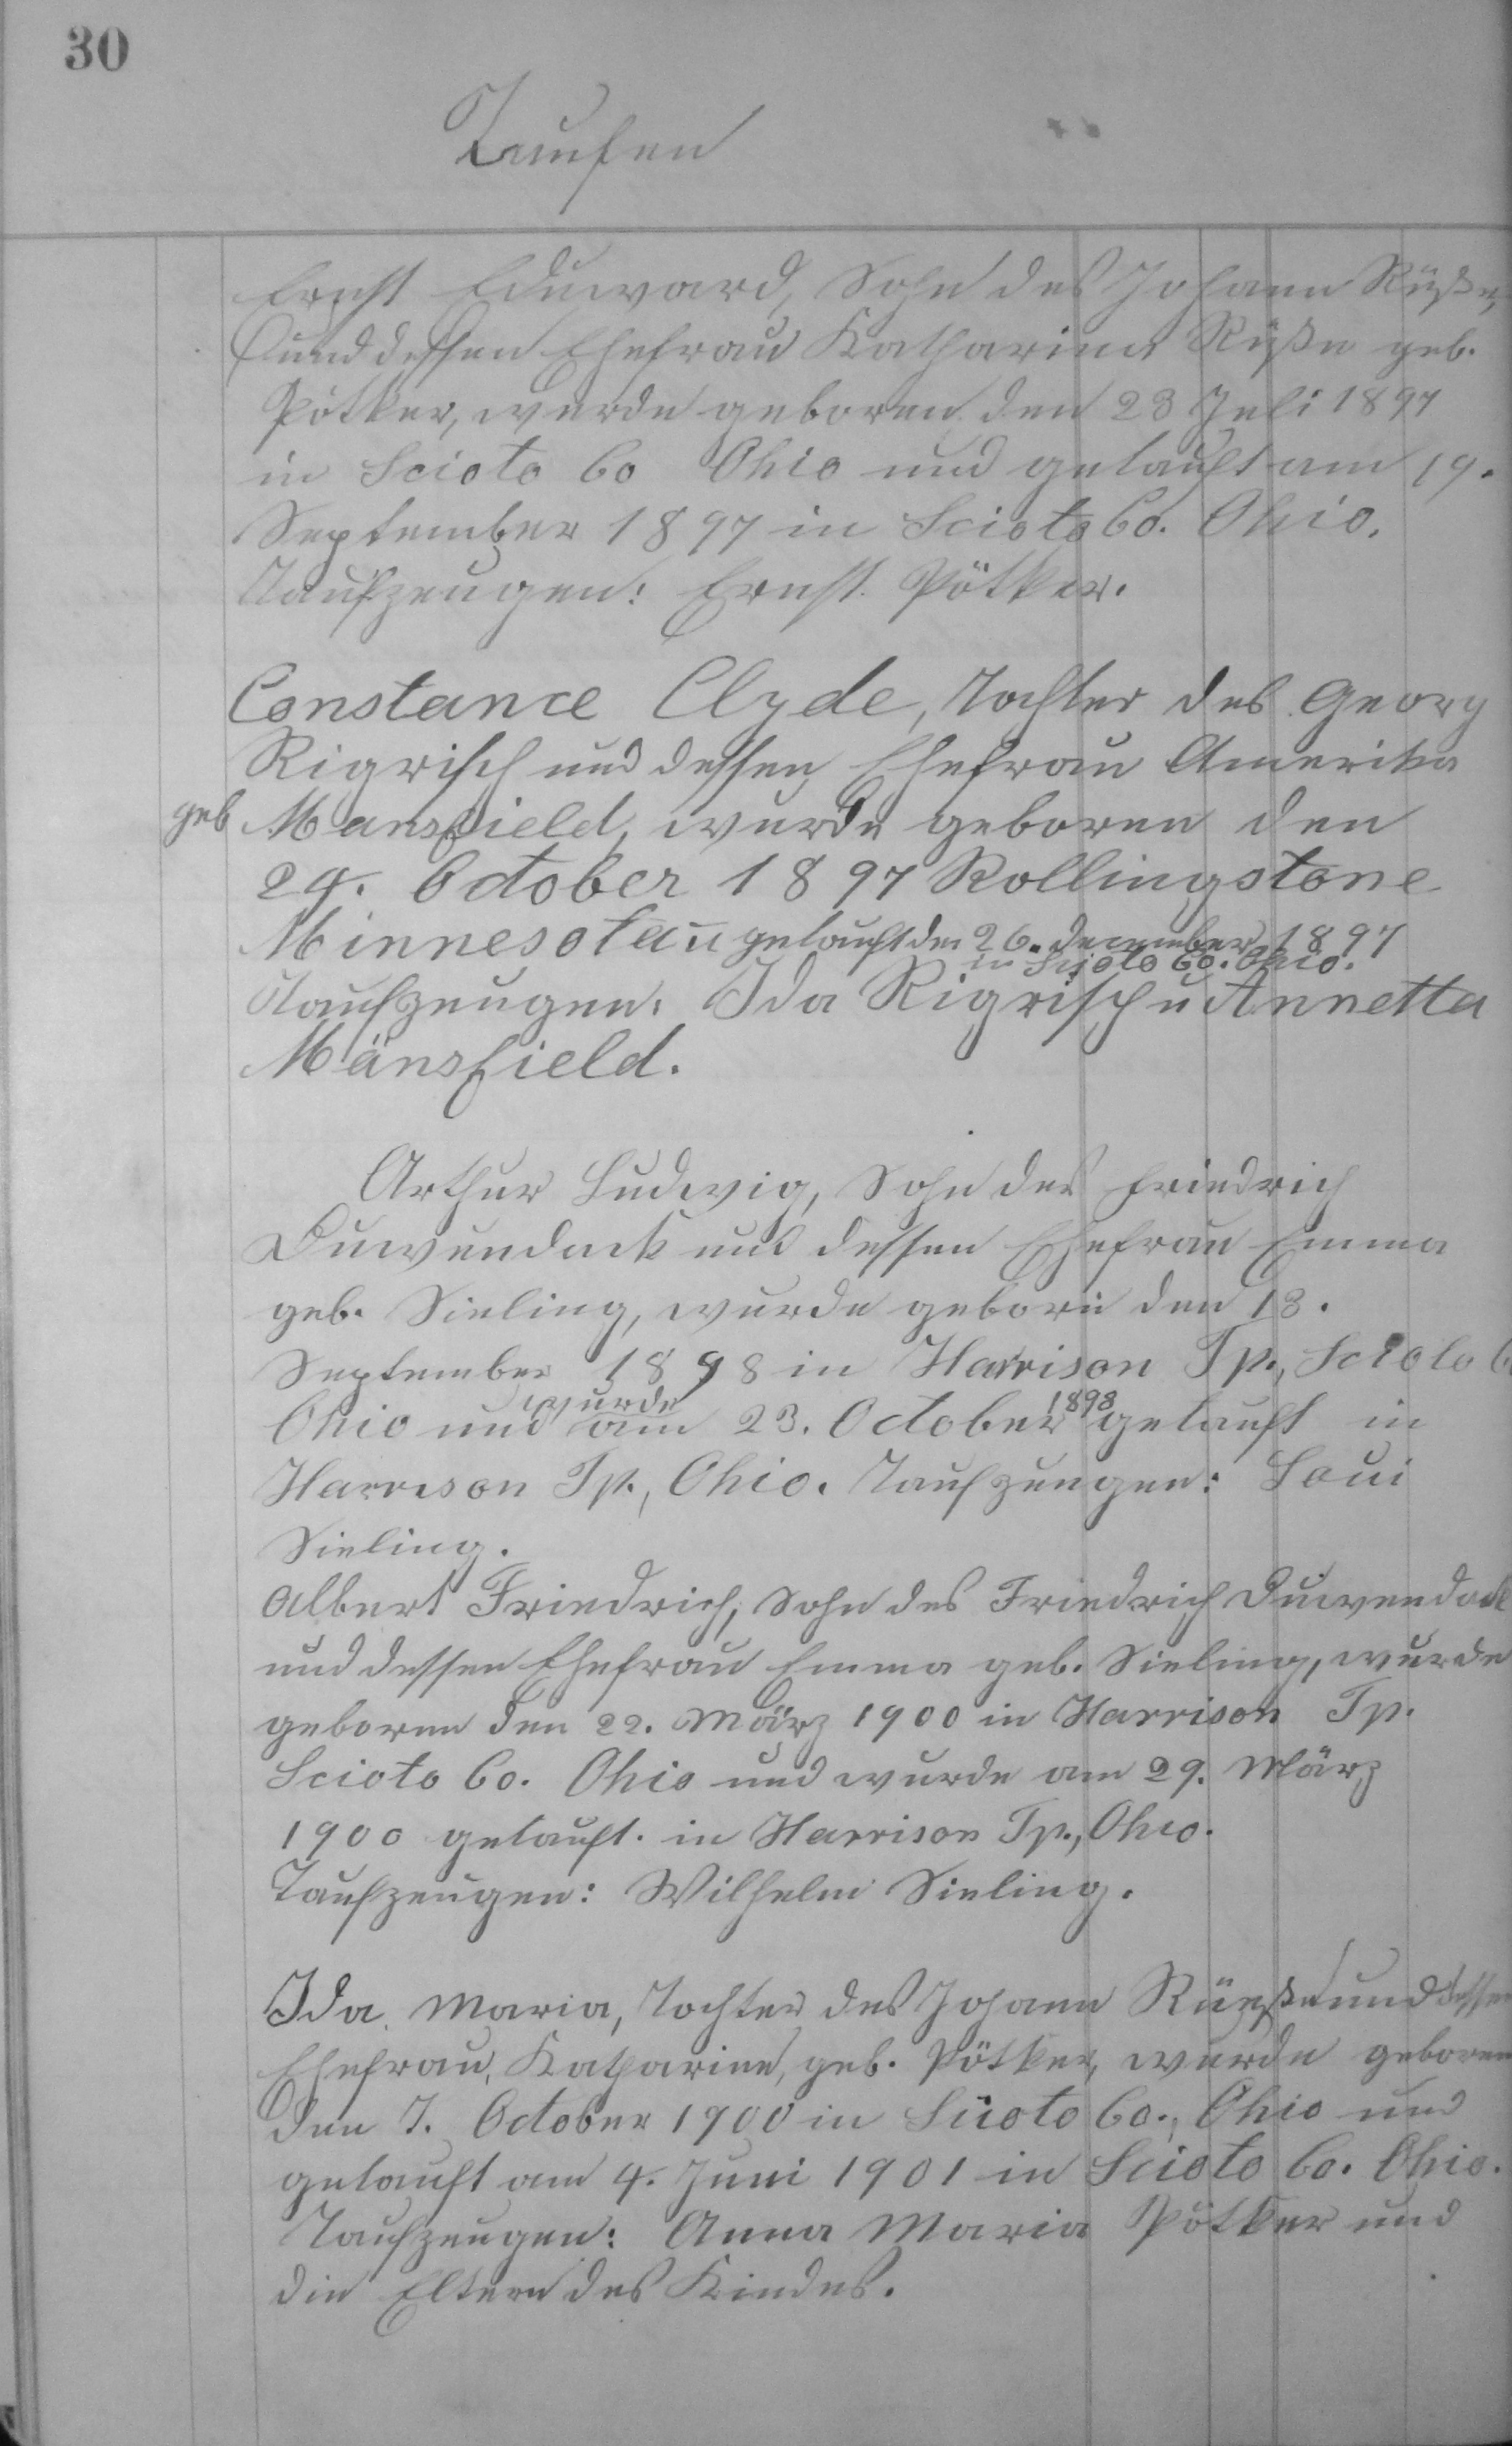 30
Taufen
Ernst Eduward, Sohn des Johann Rüße,
und dessen Ehefrau Katharina Rüße geb.
Pötker, wurde geboren den 23 Juli 1897
in Scioto Co Ohio und getauft am 19.
September 1897 in Scioto Co. Ohio.
Taufzeugen: Ernst Pötker.
Constance Clyde, Tochter des Georg
Rigrish und dessen Ehefrau Amerika
geb Mansfield, wurde geboren den
24. October 1897 Rollingstone
Minnesota u getauft den 26. December 1897
in Scioto Co. Ohio.
Taufzeugen: Ida Rigrish u Annetta
Mansfield.
Arthur Ludwig, Sohn des Friedrich
Duwendack und dessen Ehefrau Emma
geb. Sieling, wurde geboren den 13.
September 1898 in Harrison Tp., Scioto Co
Ohio und wurde am 23. October 1898 getauft in
Harrison Tp., Ohio. Taufzeugen: Loui
Sieling.
Albert Friedrich, Sohn des Friedrich Duwendack
und dessen Ehefrau Emma geb. Sieling, wurde
geboren den 22. März 1900 in Harrison Tp.
Scioto Co. Ohio und wurde am 29. März
1900 getauft. in Harrison Tp., Ohio.
Taufzeugen: Wilhelm Sieling.
Ida Maria, Tochter des Johann Rüeße und dessen
Ehefrau, Katharine, geb. Pötker, wurde geboren
den 7. October 1900 in Scioto Co., Ohio und
getauft am 4. Juni 1901 in Scioto Co. Ohio.
Taufzeugen: Anna Maria Pötker und
die Eltern des Kindes.